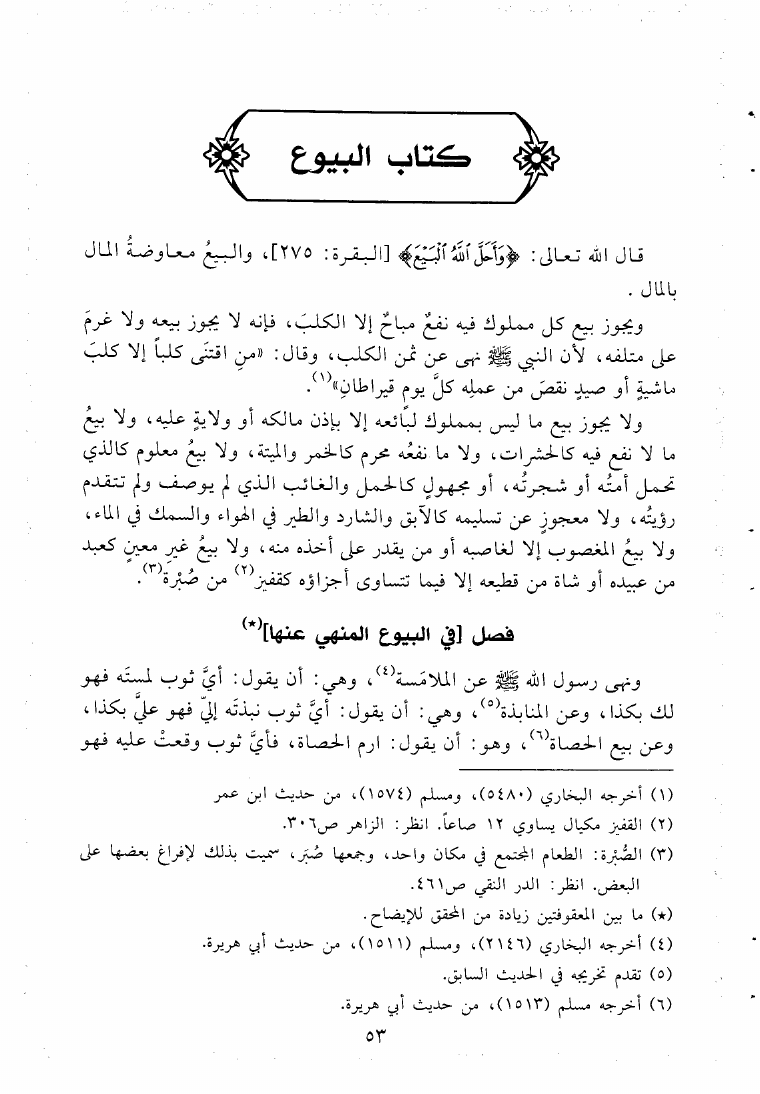 كتاب البيوع
قال الله تعالى: ﴿وَأَحَلَّ ٱللَّهُ ٱلْبَيْعَ﴾ [البقرة: ٢٧٥]، والبيعُ معاوضةُ المال
بالمال .
ويجوز بيع كل مملوك فيه نفعٌ مباحٌ إلا الكلبَ، فإنه لا يجوز بيعه ولا غرمَ
على متلفه، لأن النبي ﷺ نهى عن ثمن الكلب، وقال: «منِ اقتنَى كلباً إلا كلبَ
ماشيةٍ أو صيدٍ نقصَ من عملِه كلَّ يومٍ قيراطانِ»(١).
ولا يجوز بيع ما ليس بمملوك لبائعه إلا بإذن مالكه أو ولايةٍ عليه، ولا بيعُ
ما لا نفع فيه كالحشرات، ولا ما نفعُه محرم كالخمر والميتة، ولا بيعُ معلوم كالذي
تحمل أمتُه أو شجرتُه، أو مجهولٍ كالحمل والغائب الذي لم يوصف ولم تتقدم
رؤيتُه، ولا معجوزٍ عن تسليمه كالآبق والشارد والطير في الهواء والسمك في الماء،
ولا بيعُ المغصوب إلا لغاصبه أو من يقدر على أخذه منه، ولا بيعُ غيرِ معينٍ كعبد
من عبيده أو شاة من قطيعه إلا فيما تتساوى أجزاؤه كقفيز(٢) من صُبْرَة(٣).
فصل [في البيوع المنهي عنها](*)
ونهى رسول الله ﷺ عن الملامَسة(٤)، وهي: أن يقول: أيَّ ثوب لمستَه فهو
لك بكذا، وعن المنابذة(٥)، وهي: أن يقول: أيَّ ثوب نبذتَه إليّ فهو عليَّ بكذا،
وعن بيع الحصاة(٦)، وهو: أن يقول: ارم الحصاة، فأيَّ ثوب وقعتْ عليه فهو
(١) أخرجه البخاري (٥٤٨٠)، ومسلم (١٥٧٤)، من حديث ابن عمر
(٢) القفيز مكيال يساوي ١٢ صاعاً. انظر: الزاهر ص٣٠٦.
(٣) الصُّبْرة: الطعام المجتمع في مكان واحد، وجمعها صُبَر، سميت بذلك لإفراغ بعضها على
البعض. انظر: الدر النقي ص٤٦١.
(*) ما بين المعقوفتين زيادة من المحقق للإيضاح.
(٤) أخرجه البخاري (٢١٤٦)، ومسلم (١٥١١)، من حديث أبي هريرة.
(٥) تقدم تخريجه في الحديث السابق.
(٦) أخرجه مسلم (١٥١٣)، من حديث أبي هريرة.
٥٣